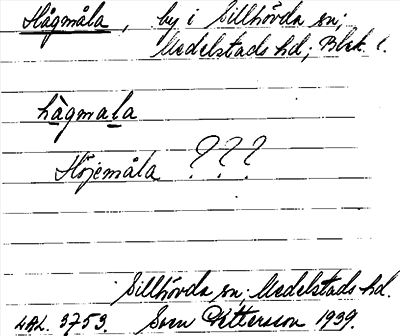 Hågmåla, by i Sillhövda sn;
Medelstads hd; Blek. l.
hàgmala
Höjemåla ???
Sillhövda sn; Medelstads hd.
LAL. 3753. Sven Pettersson 1939.